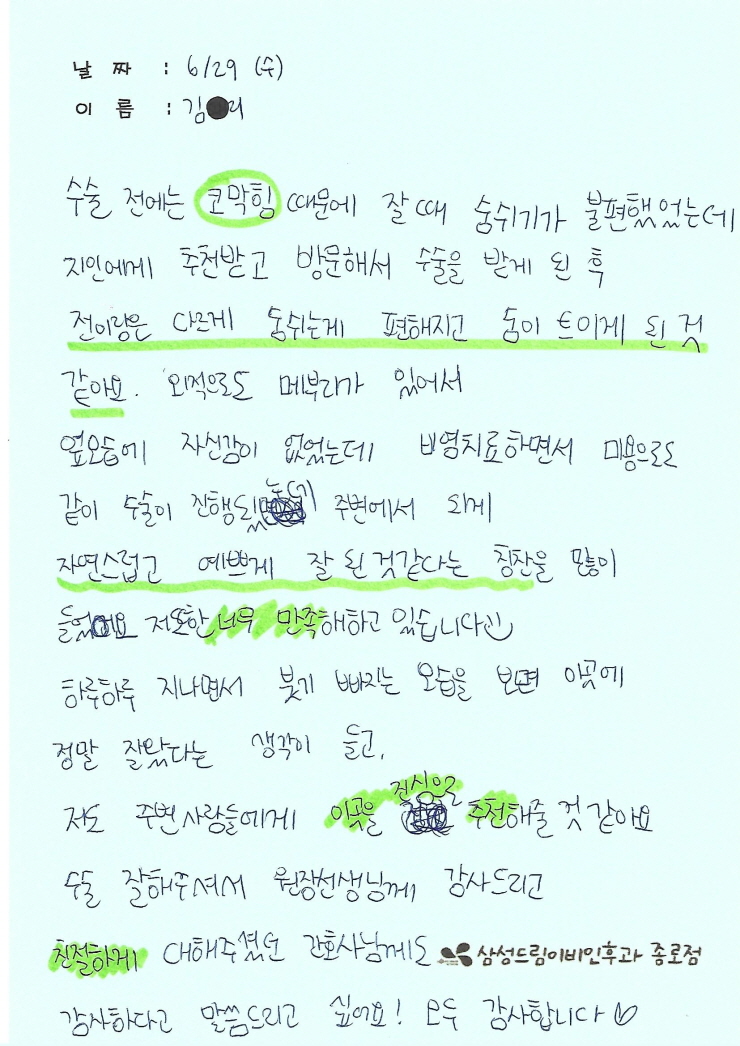 날 짜 : 6/29 (수)
이 름 : 김●리
수술 전에는 코막힘 때문에 잘때 숨쉬기가 불편했었는데
지인에게 추천받고 방문해서 수술을 받게 된 후
전이랑은 다르게 숨쉬는게 편해지고 숨이 트이게 된 것
같아요. 외적으로도 메부리가 있어서
옆모습에 자신감이 없었는데 비염치료하면서 미용으로도
같이 수술이 진행되었는데 주변에서 되게
자연스럽고 예쁘게 잘 된 것같다는 칭찬을 많이
들었어요 저또한 너무 만족해하고 있습니다
하루하루 지나면서 붓기 빠지는 모습을 보면 이곳에
정말 잘왔다는 생각이 들고,
저도 주변사람들에게 이곳을 진심으로 추천해줄 것 같아요
수술 잘해주셔서 원장선생님께 감사드리고
친절하게 대해주셨던 간호사님께도 삼성드림이비인후과 종로점
감사하다고 말씀드리고 싶어요! 모두 감사합니다♡